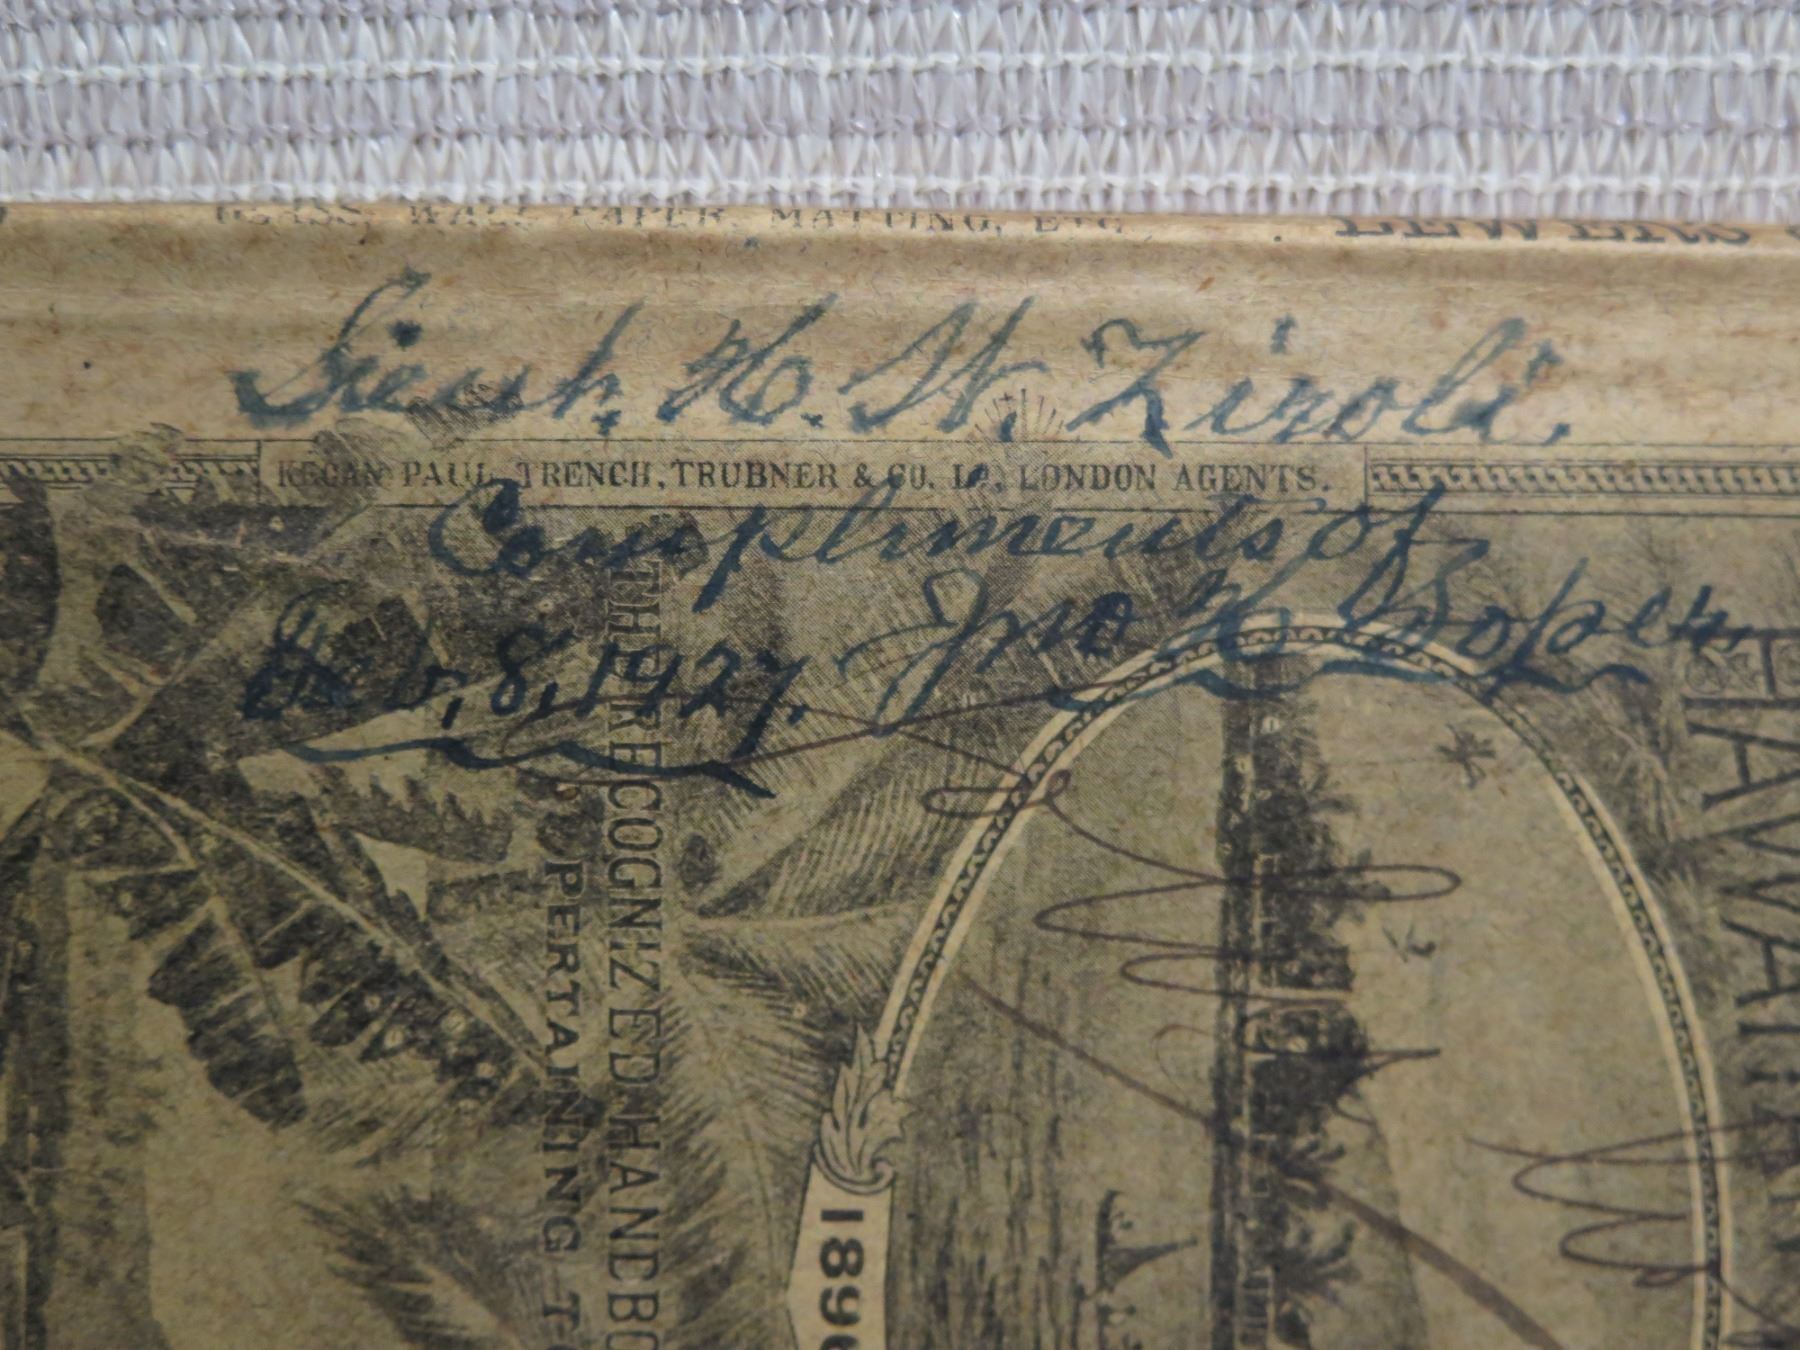 GLASS, WALL PAPER, MATTING, ETC.
LEWERS
Lieut. H. W. Ziroli.
KEGAN PAUL, TRENCH, TRUBNER & CO. LD., LONDON AGENTS.
Compliments of
8, 1927. Jno H. Soper.
THE RECOGNIZED HANDBO
PERTAINING T
HAWAIIAN
189